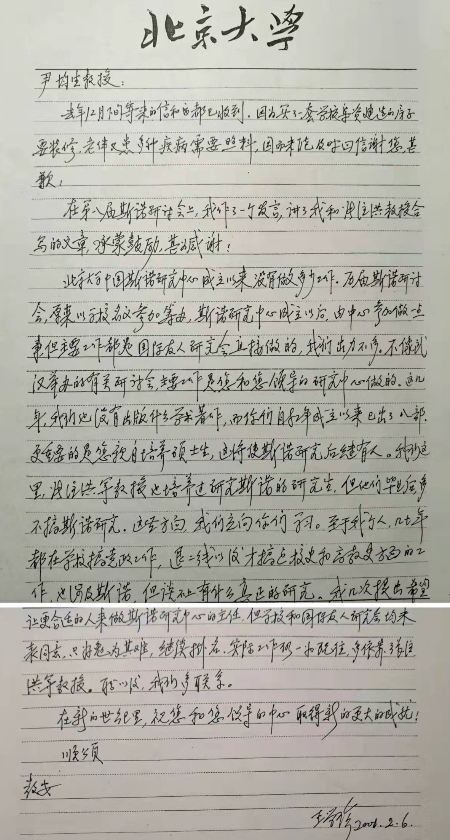 北京大学
尹均生教授：
去年12月下旬寄来的信和书都已收到，因为买了一套学校集资建造的房子
要装修，老伴又患多种疾病需要照料，因而未能及时回信谢您，甚
歉！
在第八届斯诺研讨会上，我作了一个发言，讲了我和张注洪教授合
写的文章，承蒙鼓励，甚为感谢！
北京大学中国斯诺研究中心成立以来，没有做多少工作。历届斯诺研讨
会，原来以学校名义参加筹办，斯诺研究中心成立以后，由中心参加做一点
事，但主要工作都是国际友人研究会直接做的，我们出力不多。不像武
汉举办的有关研讨会，主要工作是您和您领导的研究中心做的。这几
年，我们也没有出版什么学术著作，而你们自 年成立以来已出了八部。
更重要的是您亲自培养硕士生，这将使斯诺研究后继有人。我们这
里，张注洪等教授也培养过研究斯诺的研究生，但他们毕业后多
不搞斯诺研究。这些方面，我们应向你们学习。至于我个人，几十年
都在学校搞党政工作，退二线以后才搞点校史和高教史方面的工
作，也涉及斯诺，但谈不上有什么真正的研究。我几次提出希望
让更合适的人来做斯诺研究中心的主任，但学校和国际友人研究会均未
表同意，只好勉为其难，继续挂名，实际工作 ，多依靠张注
洪等教授。 以后，我们多联系。
在新的世纪里，祝您和您领导的中心取得新的更大的成就！
顺颂
教安
王学珍 2001.2.6.